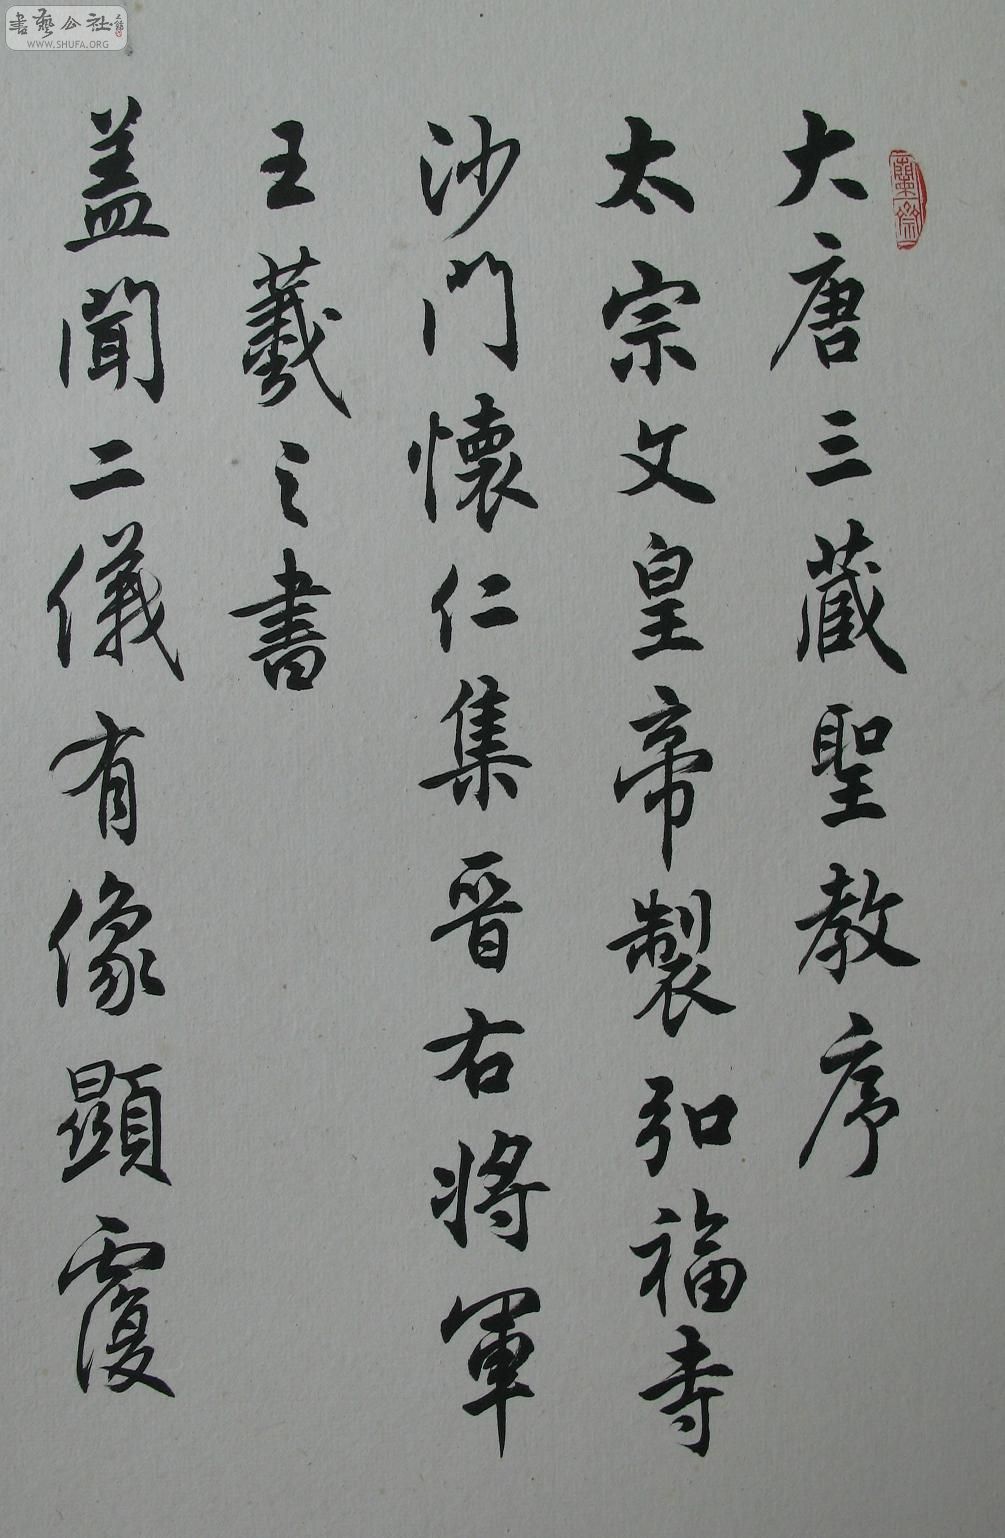 大唐三藏聖教序
太宗文皇帝製弘福寺
沙門懷仁集晉右將軍
王羲之書
蓋聞二儀有像顯覆
書藝公社
WWW.SHUFA.ORG